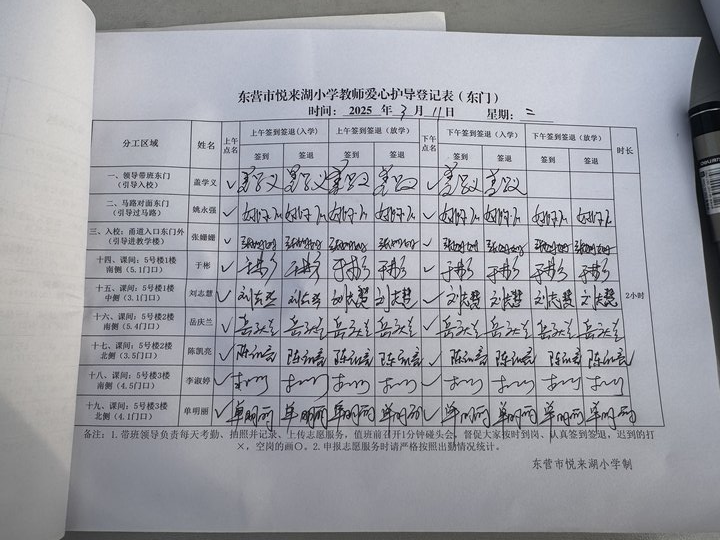 东营市悦来湖小学教师爱心护导登记表（东门）
时间： 2025 年 3 月 11 日 星期： 二
分工区域 姓名 上午点名 上午签到签退（入学） 上午签到签退（放学） 下午点名 下午签到签退（入学） 下午签到签退（放学） 时长
签到 签退 签到 签退 签到 签退 签到 签退
一、领导带班东门（引导入校） 盖学义 ✓ 盖学义 盖学义 盖学义 盖学义 ✓ 盖学义 盖学义
二、马路对面东门（引导过马路） 姚永强 ✓ ✓
三、入校：甬道入口东门外（引导进教学楼） 张姗姗 ✓ 张姗姗 张姗姗 张姗姗 张姗姗 ✓ 张姗姗 张姗姗 张姗姗 张姗姗
十四、课间：5号楼1楼南侧（5.1门口） 于彬 ✓ 于彬 于彬 于彬 于彬 ✓ 于彬 于彬 于彬 于彬
十五、课间：5号楼1楼中侧（3.1门口） 刘志慧 ✓ 刘志慧 刘志慧 刘志慧 刘志慧 ✓ 刘志慧 刘志慧 刘志慧 刘志慧 2小时
十六、课间：5号楼2楼南侧（5.4门口） 岳庆兰 ✓ 岳庆兰 岳庆兰 岳庆兰 岳庆兰 ✓ 岳庆兰 岳庆兰 岳庆兰 岳庆兰
十七、课间：5号楼2楼北侧（3.5门口） 陈凯亮 ✓ 陈凯亮 陈凯亮 陈凯亮 陈凯亮 ✓ 陈凯亮 陈凯亮 陈凯亮 陈凯亮
十八、课间：5号楼3楼南侧（4.5门口） 李淑婷 ✓ ✓
十九、课间：5号楼3楼北侧（4.1门口） 单明丽 ✓ 单明丽 单明丽 单明丽 单明丽 ✓ 单明丽 单明丽 单明丽 单明丽
备注：1.带班领导负责每天考勤、拍照并记录、上传志愿服务，值班前召开1分钟碰头会，督促大家按时到岗、认真签到签退，迟到的打
×，空岗的画〇。2.申报志愿服务时请严格按照出勤情况统计。
东营市悦来湖小学制